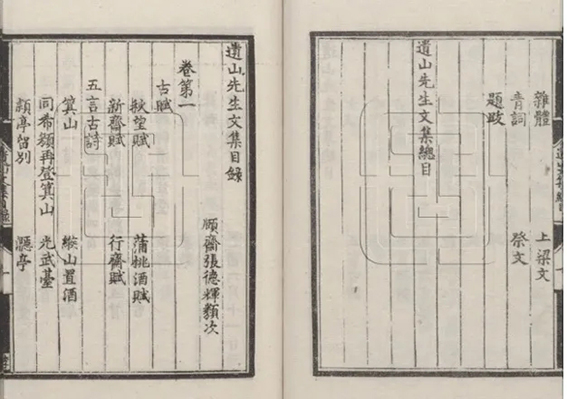 雜體 上梁文
青詞 祭文
題跋
遺山先生文集總目
遺山先生文集目錄
頤齋張德輝類次
卷第一
古賦
秋望賦 蒲桃酒賦
新齋賦 行齋賦
五言古詩
箕山 緱山置酒
同希顏再登箕山 光武臺
潁亭留別 㶏亭